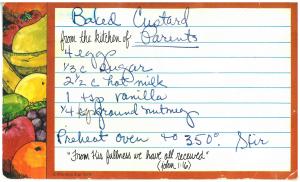 Baked Custard
from the kitchen of Parents
4 eggs
1/3 c sugar
2 1/2 c hot milk
1 tsp vanilla
1/4 tsp ground nutmeg
Preheat oven to 350°. Stir
"From His fullness we have all received"
(John 1:16)